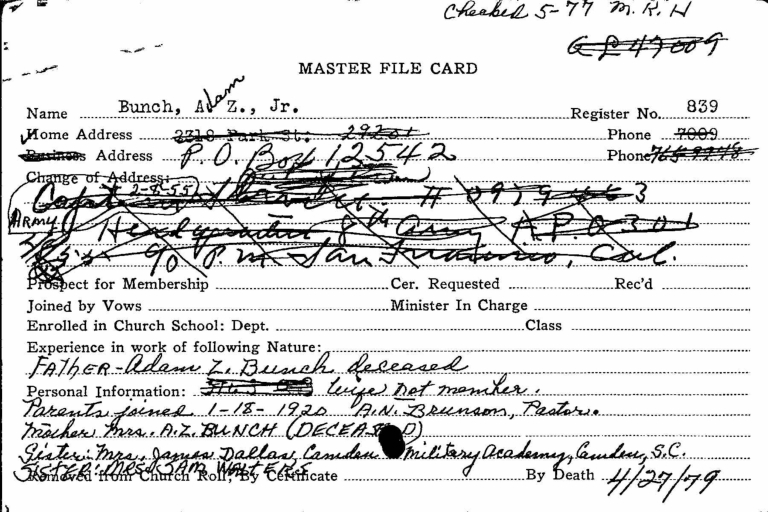 Checked 5-77 M.R.H
47009
MASTER FILE CARD
Name Bunch, Adam Z., Jr. Register No. 839
Home Address 2310 Park St. 29201 Phone 7009
Business Address P.O. Box 12542 Phone 765-9948
Change of Address:
Captain 2-8-55 # 0979
ARMY Headquarters 8th Army A.P.O 301
% P.M San Francisco, Cal.
Prospect for Membership Cer. Requested Rec'd
Joined by Vows Minister In Charge
Enrolled in Church School: Dept. Class
Experience in work of following Nature:
FATHER-Adam Z. Bunch deceased
Personal Information: Wife not member.
Parents joined 1-18-1920 A.N. Brunson, Pastor.
Mother Mrs. A.Z. BUNCH (DECEASED)
Sister: Mrs. James Dallas, Camden Military Academy, Camden, S.C.
SISTER: MRS. SAM WALTERS
Removed from Church Roll; By Certificate By Death 4/27/79